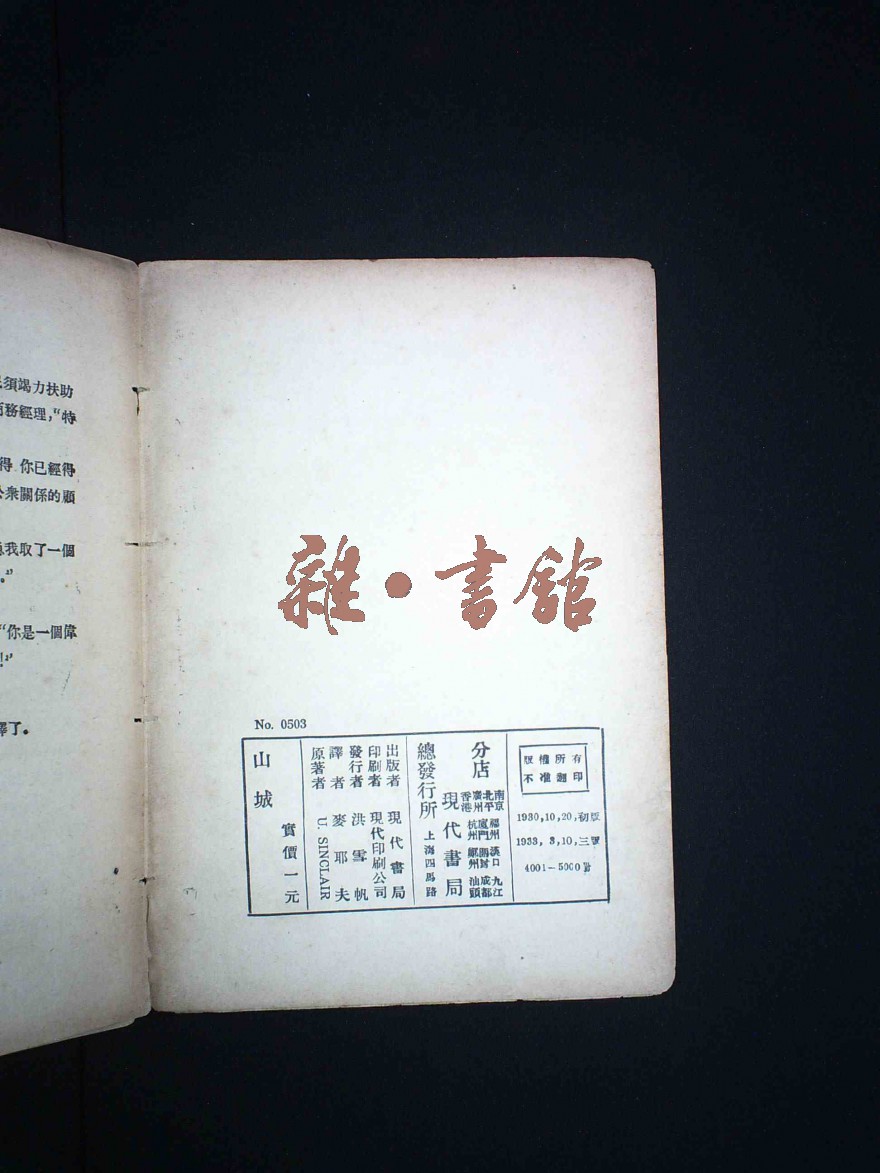 須竭力扶助
務經理，“特
得 你已經得
衆關係的顧
我取了一個
。”
“你是一個偉
！”
了。
雜·書館
No. 0503
版權所有
不准翻印
1930,10,20,初版
1933, 3,10,三版
4001—5000冊
分店
南京 福州 漢口 九江
北平 廈門 開封 成都
廣州 杭州 鄭州 汕頭
香港
總發行所
現代書局
上海四馬路
出版者 現代書局
印刷者 現代印刷公司
發行者 洪雪帆
譯者 麥耶夫
原著者 U. SINCLAIR
山城
實價一元